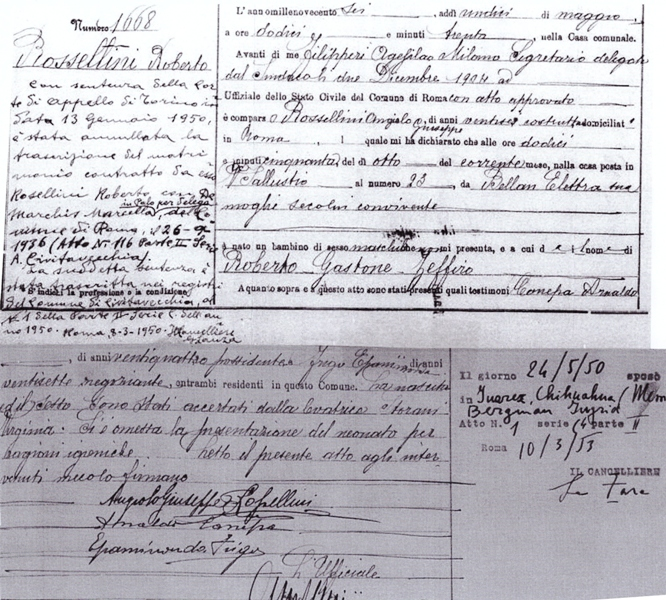 Numero 1668
Rossellini Roberto
Con sentenza della Cor
te di Appello di Torino in
data 13 Gennaio 1950,
è stata annullata la
trascrizione del matri
monio contratto da esso
Rosellini Roberto con De
Marchis Marcella,
in Roma, il 26-9-
1936 (Atto N. 116 Parte II Serie
A. Civitavecchia)
La suddetta sentenza è
stata trascritta nei registri
S'indichi la professione o la condizione.
del Comune di Civitavecchia, al
N. 1 della Parte II Serie C. dell'an
no 1950. Roma, 8-3-1950. Il Cancelliere
L'anno millenovecento sei, addì undici di maggio,
a ore dodici e minuti trenta, nella Casa comunale.
Avanti di me Filipperi Agesilao Milano Segretario delegato
dal Sindaco li due Dicembre 1904 ad
Uffiziale dello Stato Civile del Comune di Roma con atto approvato
è comparso Rossellini Angiolo Giuseppe, di anni ventisei costruttore domiciliato
in Roma, il quale mi ha dichiarato che alle ore dodici
e minuti cinquanta del dì otto del corrente mese, nella casa posta in
V. Sallustio al numero 23, da Bellan Elettra sua
moglie secolui convivente
è nato un bambino di sesso maschile che non mi presenta, e a cui dà i nomi di
Roberto Gastone Zeffiro
A quanto sopra e a questo atto sono stati presenti quali testimoni Conepa Arnaldo
, di anni ventiquattro possidente e Frigo Epaminonda, di anni
ventisette negoziante, entrambi residenti in questo Comune. La nascita
ed il sesso sono stati accertati dalla levatrice
Virginia: Si è omessa la presentazione del neonato per
ragioni igieniche. Letto il presente atto agli inter
venuti meco lo firmano
Angiolo Giuseppe Rossellini
Arnaldo Conepa
Epaminonda Frigo
L'Ufficiale
Il giorno 24/5/50 sposò
in Juarez, Chihuahua (
Bergman Ingrid
Atto N. 1 serie parte II
Roma 10/3/53
IL CANCELLIERE
La Fara